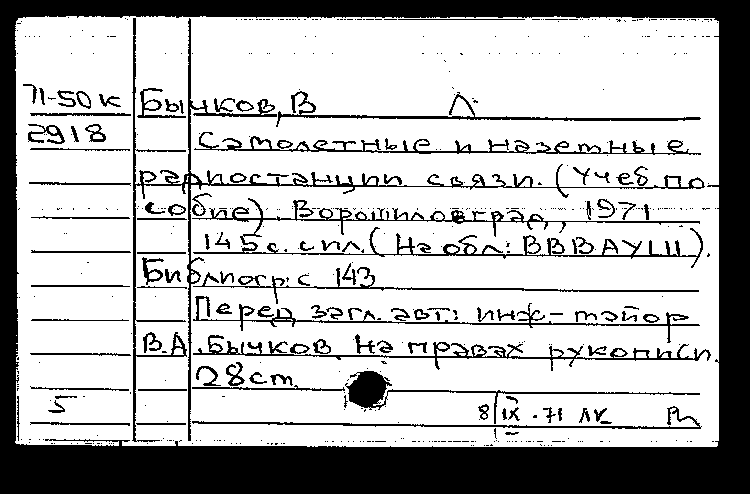 71-50к Бычков, В Л.
2918 Самолетные и наземные
радиостанции связи. (Учеб. по-
собие). Ворошиловград, 1971
145 с. с ил. (На обл: ВВВАУШ).
Библиогр: с 143
Перед загл. авт.: инж-майор
В.А. Бычков. На правах рукописи.
28 cm
5 8/IX.71 ЛК